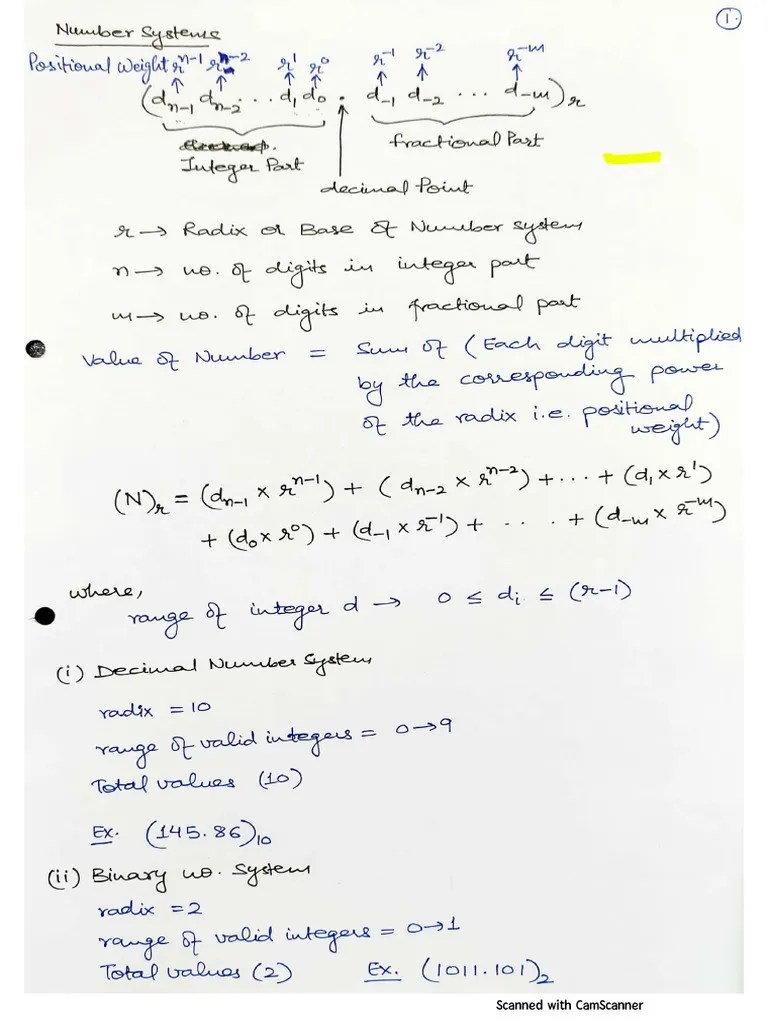 1.
Number Systems
Positional Weight r^{n-1} r^{n-2} r^1 r^0 r^{-1} r^{-2} r^{-m}
(d_{n-1} d_{n-2} ... d_1 d_0 . d_{-1} d_{-2} ... d_{-m})_r
Integer Part
fractional Part
decimal Point
r → Radix or Base of Number system
n → no. of digits in integer part
m → no. of digits in fractional part
Value of Number = Sum of (Each digit multiplied
by the corresponding power
of the radix i.e. positional
weight)
(N)_r = (d_{n-1} × r^{n-1}) + (d_{n-2} × r^{n-2}) + ... + (d_1 × r^1)
+ (d_0 × r^0) + (d_{-1} × r^{-1}) + .... + (d_{-m} × r^{-m})
where,
range of integer d → 0 ≤ d_i ≤ (r-1)
(i) Decimal Number System
radix = 10
range of valid integers = 0→9
Total values (10)
Ex. (145.86)_{10}
(ii) Binary no. System
radix = 2
range of valid integers = 0→1
Total values (2) Ex. (1011.101)_2
Scanned with CamScanner